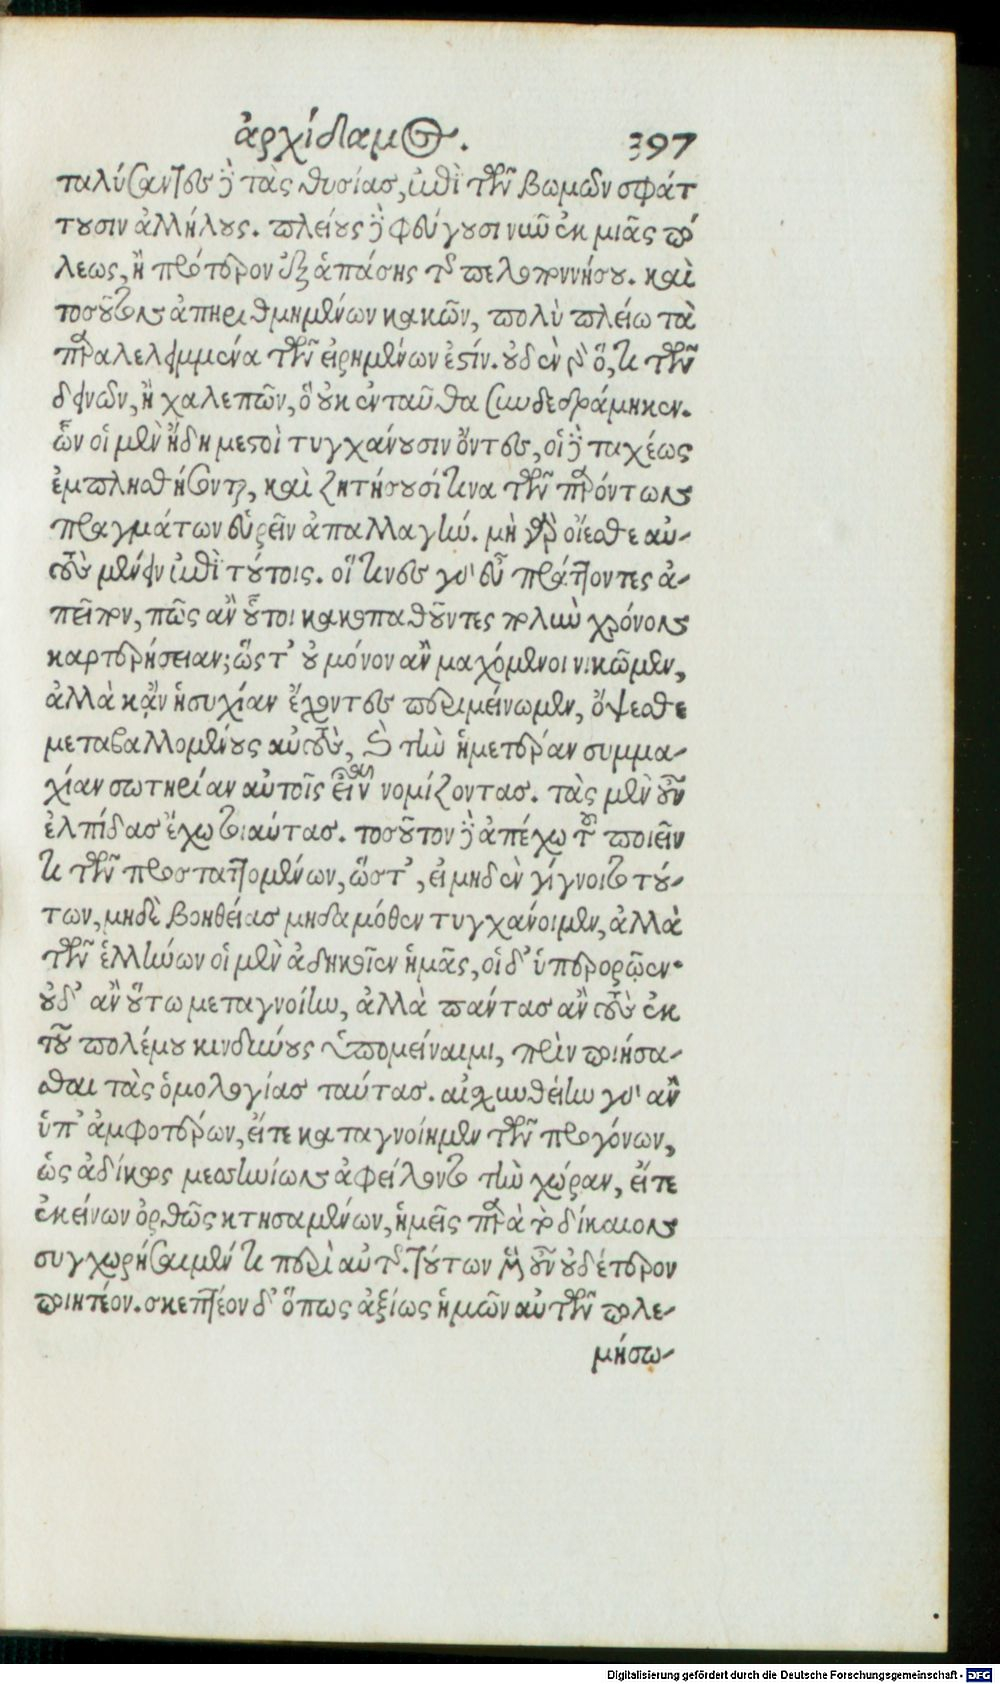 ἀρχίδαμος. 397
ταλύσαντες δὲ τὰς θυσίας, ἐπὶ τῶν βωμῶν σφάτ
τουσιν ἀλλήλους. πλείους δὲ φεύγουσι νῦν ἐκ μιᾶς πό
λεως, ἢ πρότερον ἐξ ἁπάσης τῆς πελοποννήσου. καὶ
τοσούτων ἀπηριθμημένων κακῶν, πολὺ πλείω τὰ
παραλελειμμένα τῶν εἰρημένων ἐστίν. οὐδὲν γὰρ ὅ, τι τῶν
δεινῶν, ἢ χαλεπῶν, ὃ οὐκ ἐνταῦθα συνδεδράμηκεν.
ὧν οἱ μὲν ἤδη μεστοὶ τυγχάνουσιν ὄντες, οἱ δὲ ταχέως
ἐμπλησθήσονται, καὶ ζητήσουσί τινα τῶν παρόντων
πραγμάτων εὑρεῖν ἀπαλλαγήν. μὴ γὰρ οἴεσθε αὐ-
τοὺς μένειν ἐπὶ τούτοις. οἵτινες γὰρ εὖ πράττοντες ἀ-
πεῖπον, πῶς ἂν οὗτοι κακοπαθοῦντες πολὺν χρόνον
καρτερήσειαν; ὥστ' οὐ μόνον ἂν μαχόμενοι νικῶμεν,
ἀλλὰ κᾂν ἡσυχίαν ἔχοντες περιμείνωμεν, ὄψεσθε
μεταβαλλομένους αὐτοὺς, καὶ τὴν ἡμετέραν συμμα-
χίαν σωτηρίαν αὐτοῖς εἶναι νομίζοντας. τὰς μὲν οὖν
ἐλπίδας ἔχω τοιαύτας. τοσοῦτον δὲ ἀπέχω τοῦ ποιεῖν
τι τῶν προσταττομένων, ὥστ', εἰ μηδὲν γίγνοιτο τού-
των, μηδὲ βοηθείας μηδαμόθεν τυγχάνοιμεν, ἀλλὰ
τῶν ἑλλήνων οἱ μὲν ἀδικοῖεν ἡμᾶς, οἱ δ' ὑπερορῷεν·
οὐδ' ἂν οὕτω μεταγνοίην, ἀλλὰ πάντας ἂν τοὺς ἐκ
τοῦ πολέμου κινδύνους ὑπομείναιμι, πρὶν ποιήσα-
σθαι τὰς ὁμολογίας ταύτας. αἰσχυνθείην γὰρ ἂν
ὑπ' ἀμφοτέρων, εἴτε καταγνοίημεν τῶν προγόνων,
ὡς ἀδίκως μεσσηνίων ἀφείλοντο τὴν χώραν, εἴτε
ἐκείνων ὀρθῶς κτησαμένων, ἡμεῖς παρὰ τὸ δίκαιον
συγχωρήσαιμέν τι περὶ αὐτῆς. τούτων μὲν οὖν οὐδέτερον
ποιητέον. σκεπτέον δ' ὅπως ἀξίως ἡμῶν αὐτῶν πολε-
μήσω-
Digitalisierung gefördert durch die Deutsche Forschungsgemeinschaft - DFG